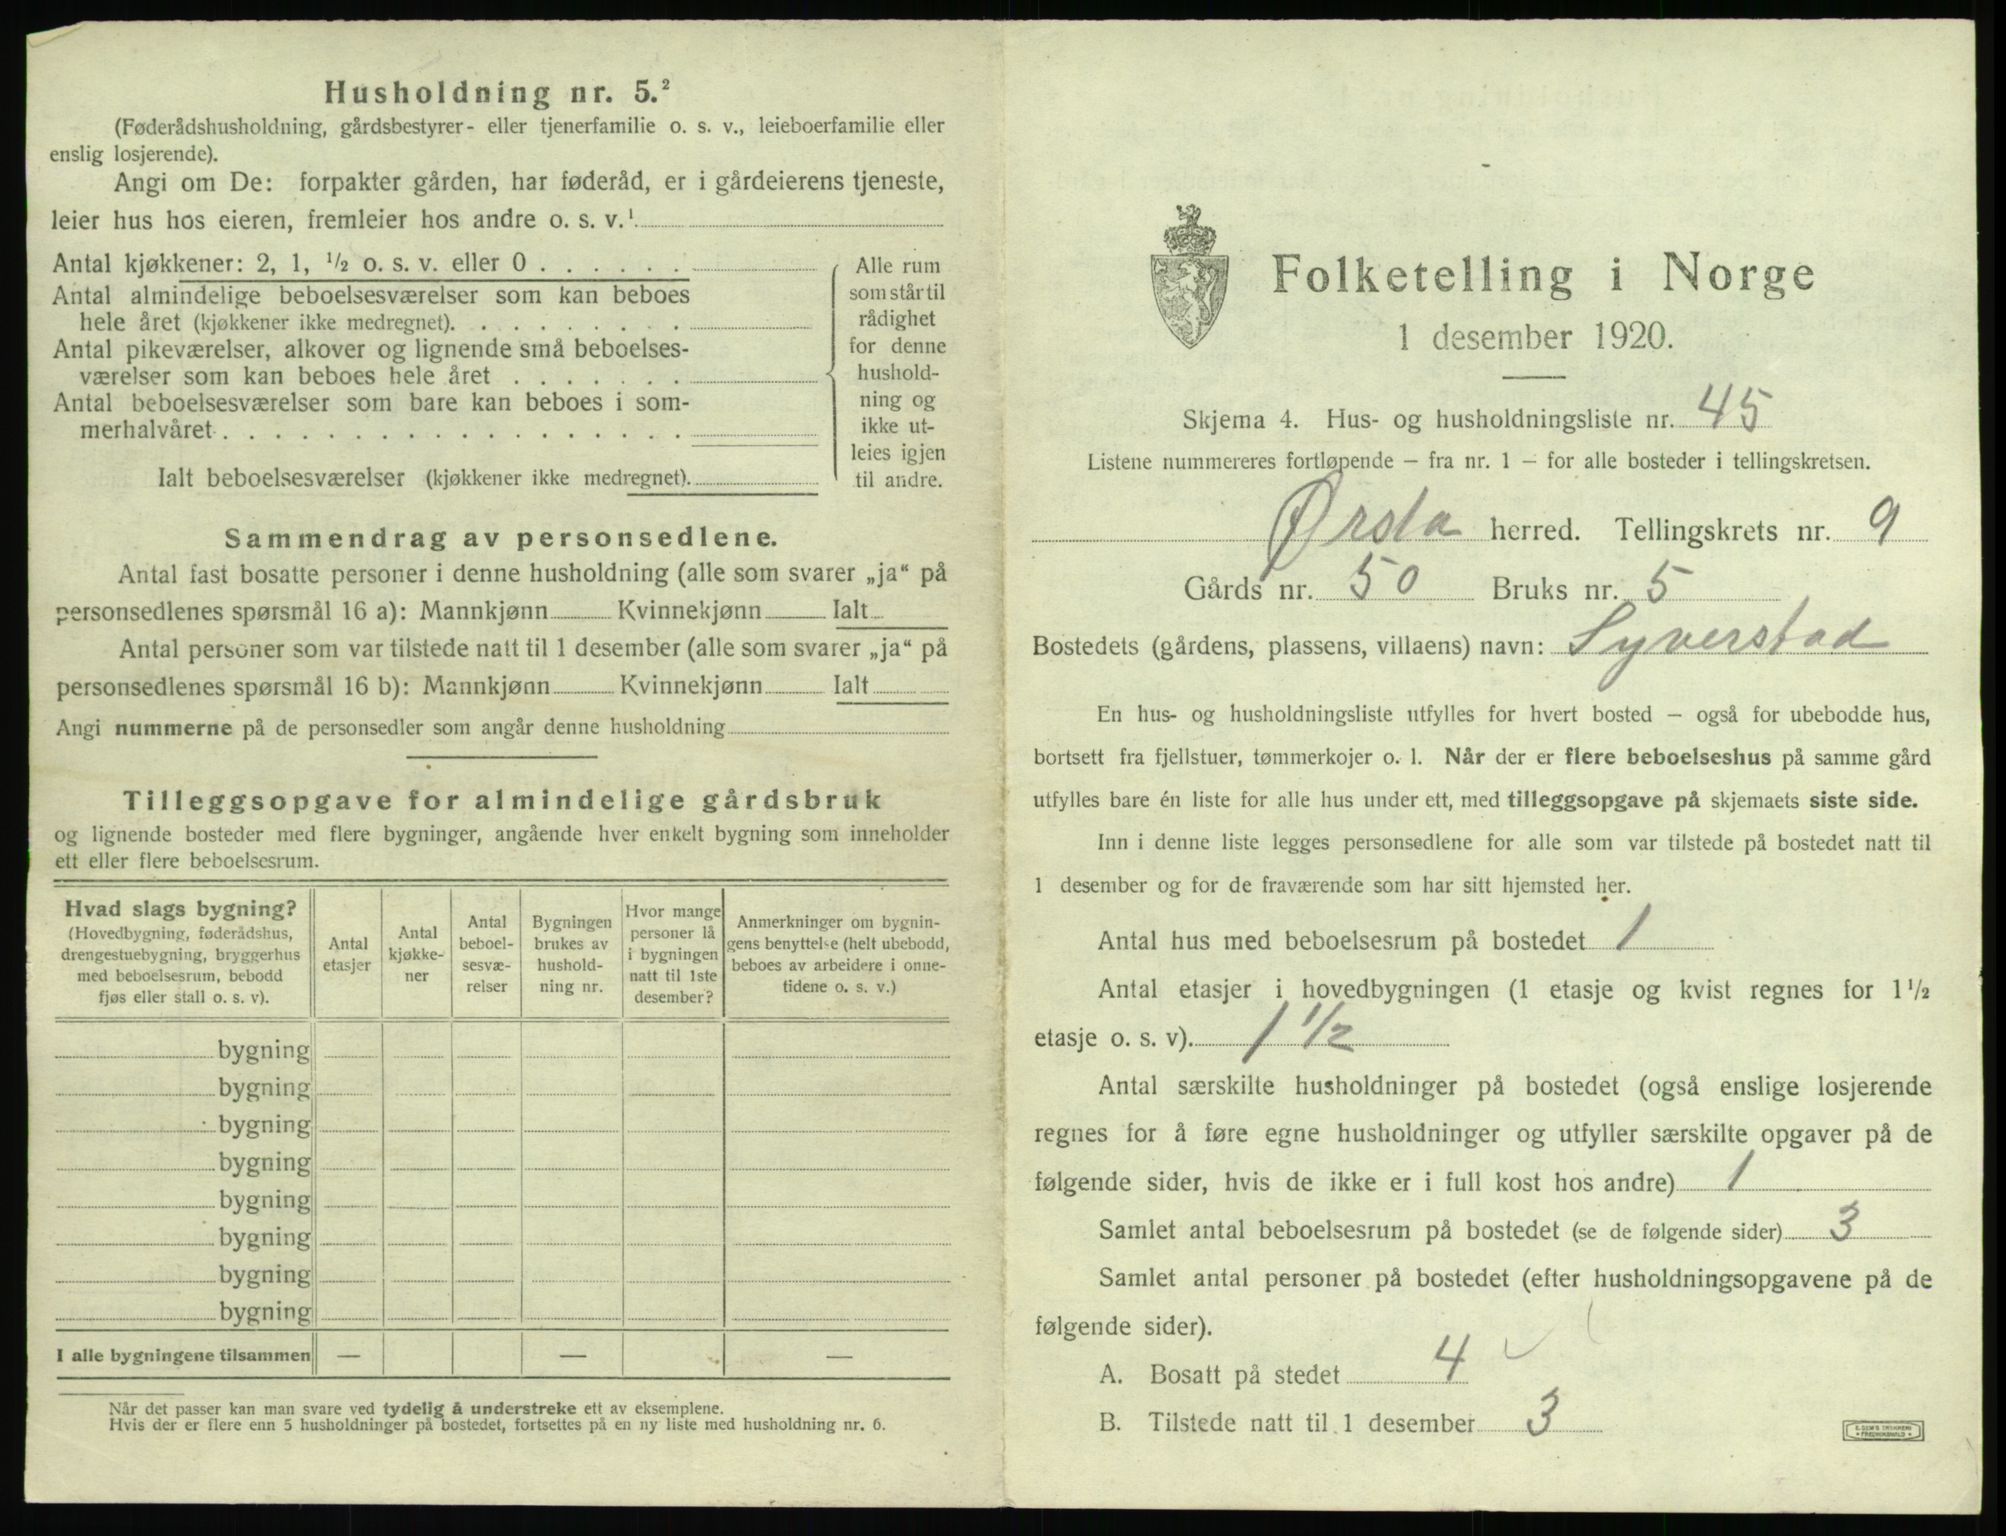 Husholdning nr. 5.²
(Føderådshusholdning, gårdsbestyrer- eller tjenerfamilie o. s. v., leieboerfamilie eller
enslig losjerende).
Angi om De: forpakter gården, har føderåd, er i gårdeierens tjeneste,
leier hus hos eieren, fremleier hos andre o. s. v.¹
Antal kjøkkener: 2, 1, ½ o. s. v. eller 0 . . . . . .
Antal almindelige beboelsesværelser som kan beboes
hele året (kjøkkener ikke medregnet). . . . . . . . .
Antal pikeværelser, alkover og lignende små beboelses-
værelser som kan beboes hele året . . . . . . .
Antal beboelsesværelser som bare kan beboes i som-
merhalvåret . . . . . . . . . . . . . . . . .
Ialt beboelsesværelser (kjøkkener ikke medregnet).
Alle rum
som står til
rådighet
for denne
hushold-
ning og
ikke ut-
leies igjen
til andre.
Sammendrag av personsedlene.
Antal fast bosatte personer i denne husholdning (alle som svarer „ja“ på
personsedlenes spørsmål 16 a): Mannkjønn Kvinnekjønn Ialt
Antal personer som var tilstede natt til 1 desember (alle som svarer „ja“ på
personsedlenes spørsmål 16 b): Mannkjønn Kvinnekjønn Ialt
Angi nummerne på de personsedler som angår denne husholdning
Tilleggsopgave for almindelige gårdsbruk
og lignende bosteder med flere bygninger, angående hver enkelt bygning som inneholder
ett eller flere beboelsesrum.
Hvad slags bygning?
(Hovedbygning, føderådshus,
drengestuebygning, bryggerhus
med beboelsesrum, bebodd
fjøs eller stall o. s. v).
Antal
etasjer
Antal
kjøkke-
ner
Antal
beboel-
sesvæ-
relser
Bygningen
brukes av
hushold-
ning nr.
Hvor mange
personer lå
i bygningen
natt til 1ste
desember?
Anmerkninger om bygnin-
gens benyttelse (helt ubebodd,
beboes av arbeidere i onne-
tidene o. s. v.)
bygning
bygning
bygning
bygning
bygning
bygning
bygning
bygning
I alle bygningene tilsammen — — —
Når det passer kan man svare ved tydelig å understreke ett av eksemplene.
Hvis der er flere enn 5 husholdninger på bostedet, fortsettes på en ny liste med husholdning nr. 6.
Folketelling i Norge
1 desember 1920.
Skjema 4. Hus- og husholdningsliste nr. 45
Listene nummereres fortløpende – fra nr. 1 – for alle bosteder i tellingskretsen.
Ørsta herred. Tellingskrets nr. 9
Gårds nr. 50 Bruks nr. 5
Bostedets (gårdens, plassens, villaens) navn: Syverstad
En hus- og husholdningsliste utfylles for hvert bosted – også for ubebodde hus,
bortsett fra fjellstuer, tømmerkojer o. l. Når der er flere beboelseshus på samme gård
utfylles bare én liste for alle hus under ett, med tilleggsopgave på skjemaets siste side.
Inn i denne liste legges personsedlene for alle som var tilstede på bostedet natt til
1 desember og for de fraværende som har sitt hjemsted her.
Antal hus med beboelsesrum på bostedet 1
Antal etasjer i hovedbygningen (1 etasje og kvist regnes for 1½
etasje o. s. v). 1 ½
Antal særskilte husholdninger på bostedet (også enslige losjerende
regnes for å føre egne husholdninger og utfyller særskilte opgaver på de
følgende sider, hvis de ikke er i full kost hos andre) 1
Samlet antal beboelsesrum på bostedet (se de følgende sider) 3
Samlet antal personer på bostedet (efter husholdningsopgavene på de
følgende sider).
A. Bosatt på stedet 4 ✓
B. Tilstede natt til 1 desember 3